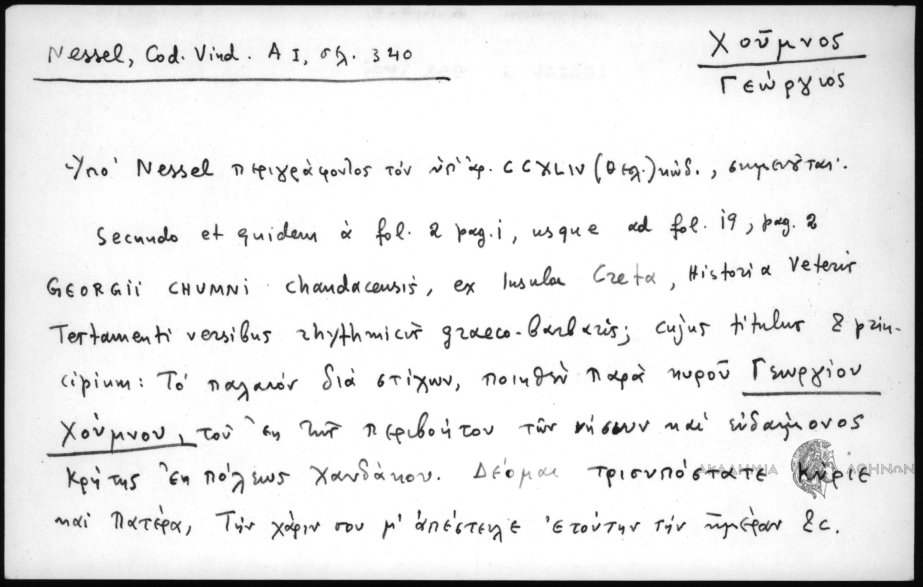 Nessel, Cod. Vind. A I, σελ. 320
Χοῦμνος
Γεώργιος
Ὑπὸ Nessel περιγράφοντος τὸν ὑπ' ἀρ. CCXLIV (θεολ.) κώδ., σημειοῦται:
Secundo et quidem à fol. 2 pag. i, usque ad fol. 19, pag. 2
GEORGII CHUMNI Chandacensis, ex Insula Creta, Historia Veteris
Testamenti versibus rhythmicis graeco-barbaris; cujus titulus & prin-
cipium: Τὸ παλαιὸν διὰ στίχων, ποιηθὲν παρὰ κυροῦ Γεωργίου
Χούμνου, τοῦ ἐκ τῆς περιβοήτου τῶν νήσων καὶ εὐδαίμονος
Κρήτης ἐκ πόλεως Χανδάκου. Δέομαι τρισυπόστατε Κύριε
καὶ Πατέρα, Τὴν χάριν σου μ' ἀπέστειλε ἐτούτην τὴν ἡμέραν &c.
ΑΚΑΔΗΜΙΑ ΑΘΗΝΩΝ